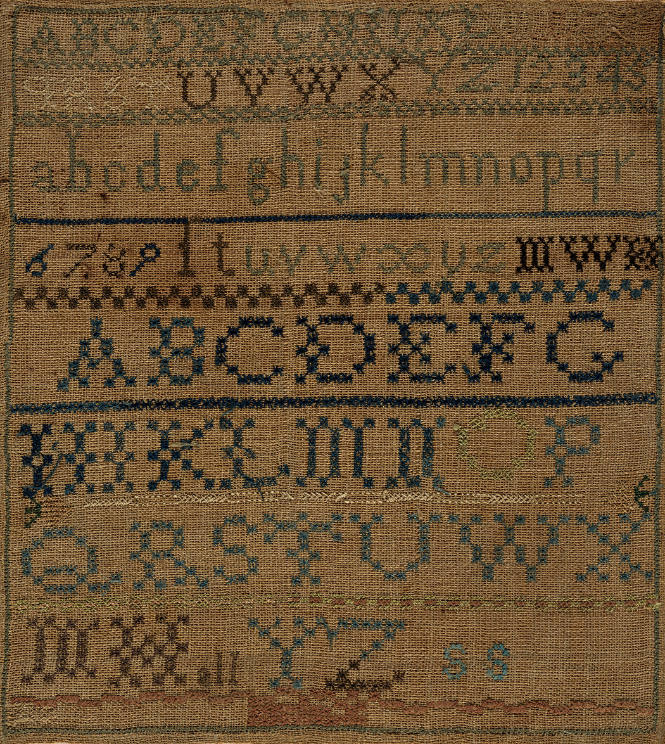 ABCDEFGHIKL
UVWXYZ12345
abcdefghijklmnopqr
6789 ltuvwxyz MW
ABCDEFG
HIKLMNOP
QRSTUWX
M all YZ S8